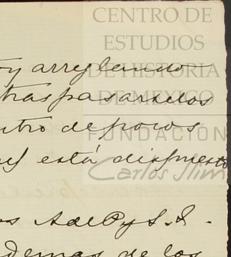 CENTRO DE
ESTUDIOS
DE HISTORIA
DE MÉXICO
FUNDACIÓN
Carlos Slim
oy arreglando
traspasarselos
ntro de pocos
está dispuesto
os A de P y S. S.
demas de los